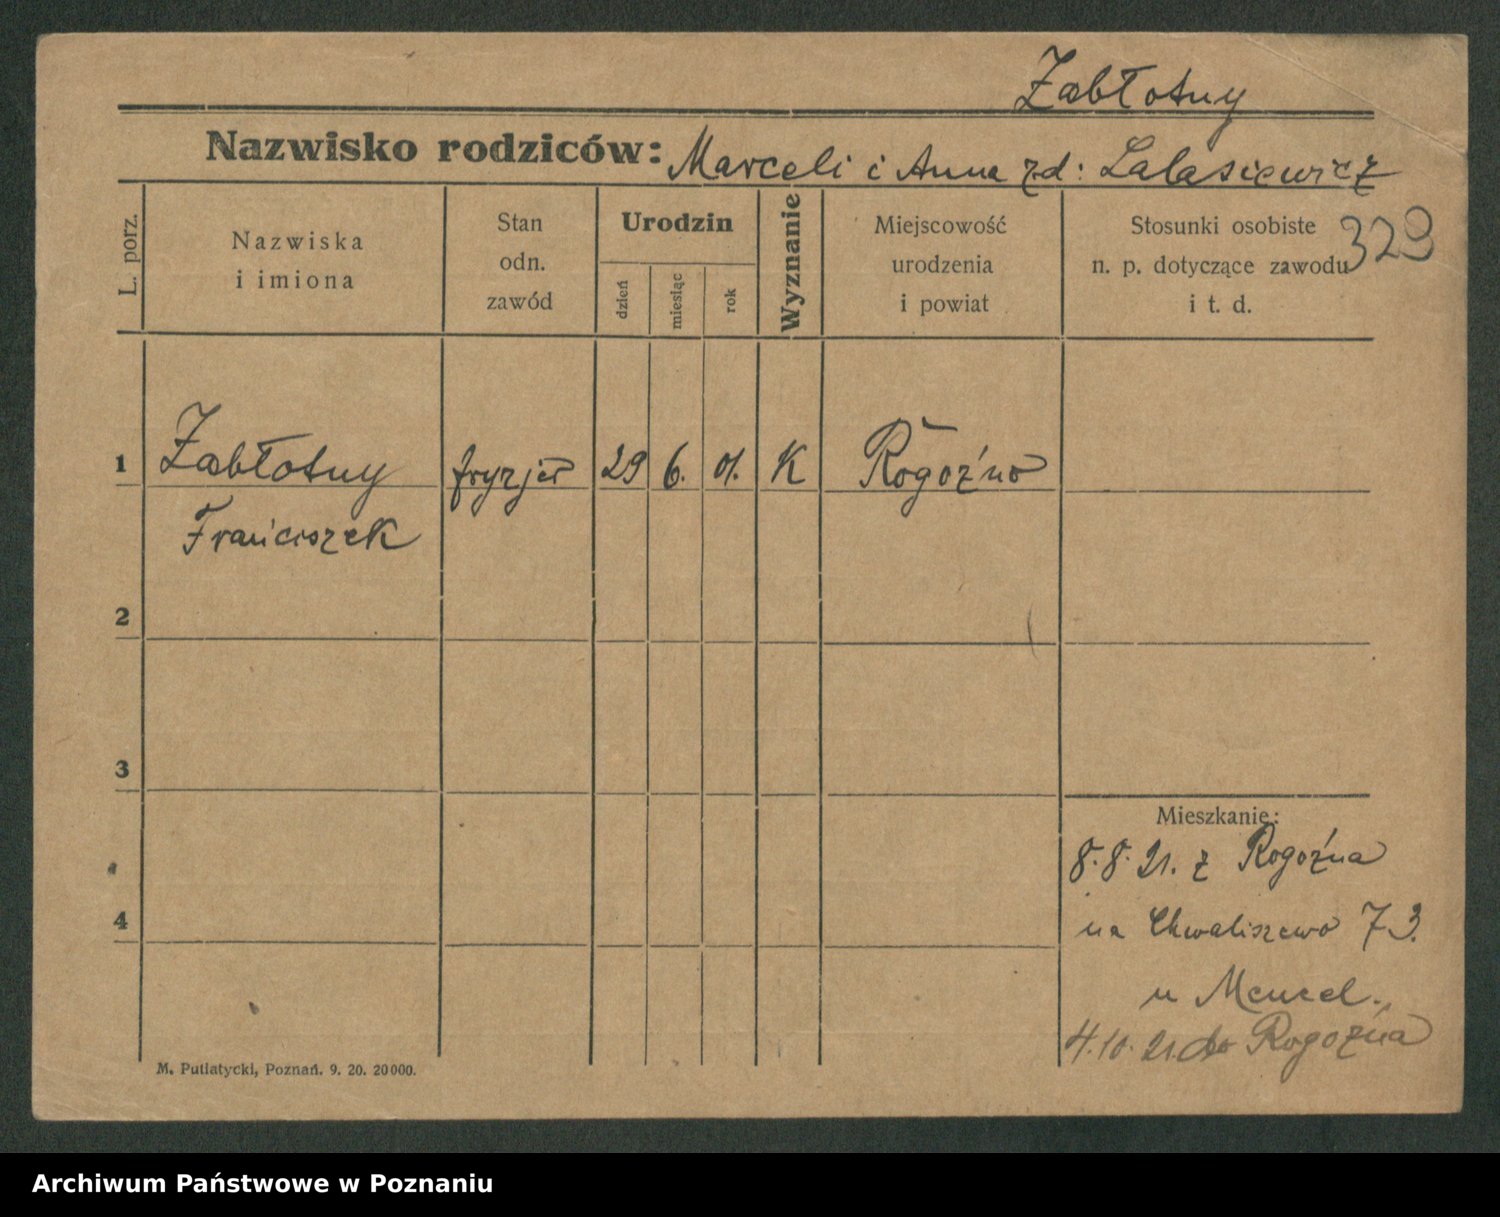 Zabłotny
Nazwisko rodziców: Marceli i Anna zd: Lalasiewicz
329
L. porz.
Nazwiska
i imiona
Stan
odn.
zawód
Urodzin
dzień
miesiąc
rok
Wyznanie
Miejscowość
urodzenia
i powiat
Stosunki osobiste
n. p. dotyczące zawodu
i t. d.
1 Zabłotny fryzjer 29 6. 01. K Rogoźno
Franciszek
2
3
4
Mieszkanie:
8.8.21. z Rogoźna
na Chwaliszewo 73.
u Mencel.
4.10.21. do Rogoźna
M. Putiatycki, Poznań. 9. 20. 20000.
Archiwum Państwowe w Poznaniu